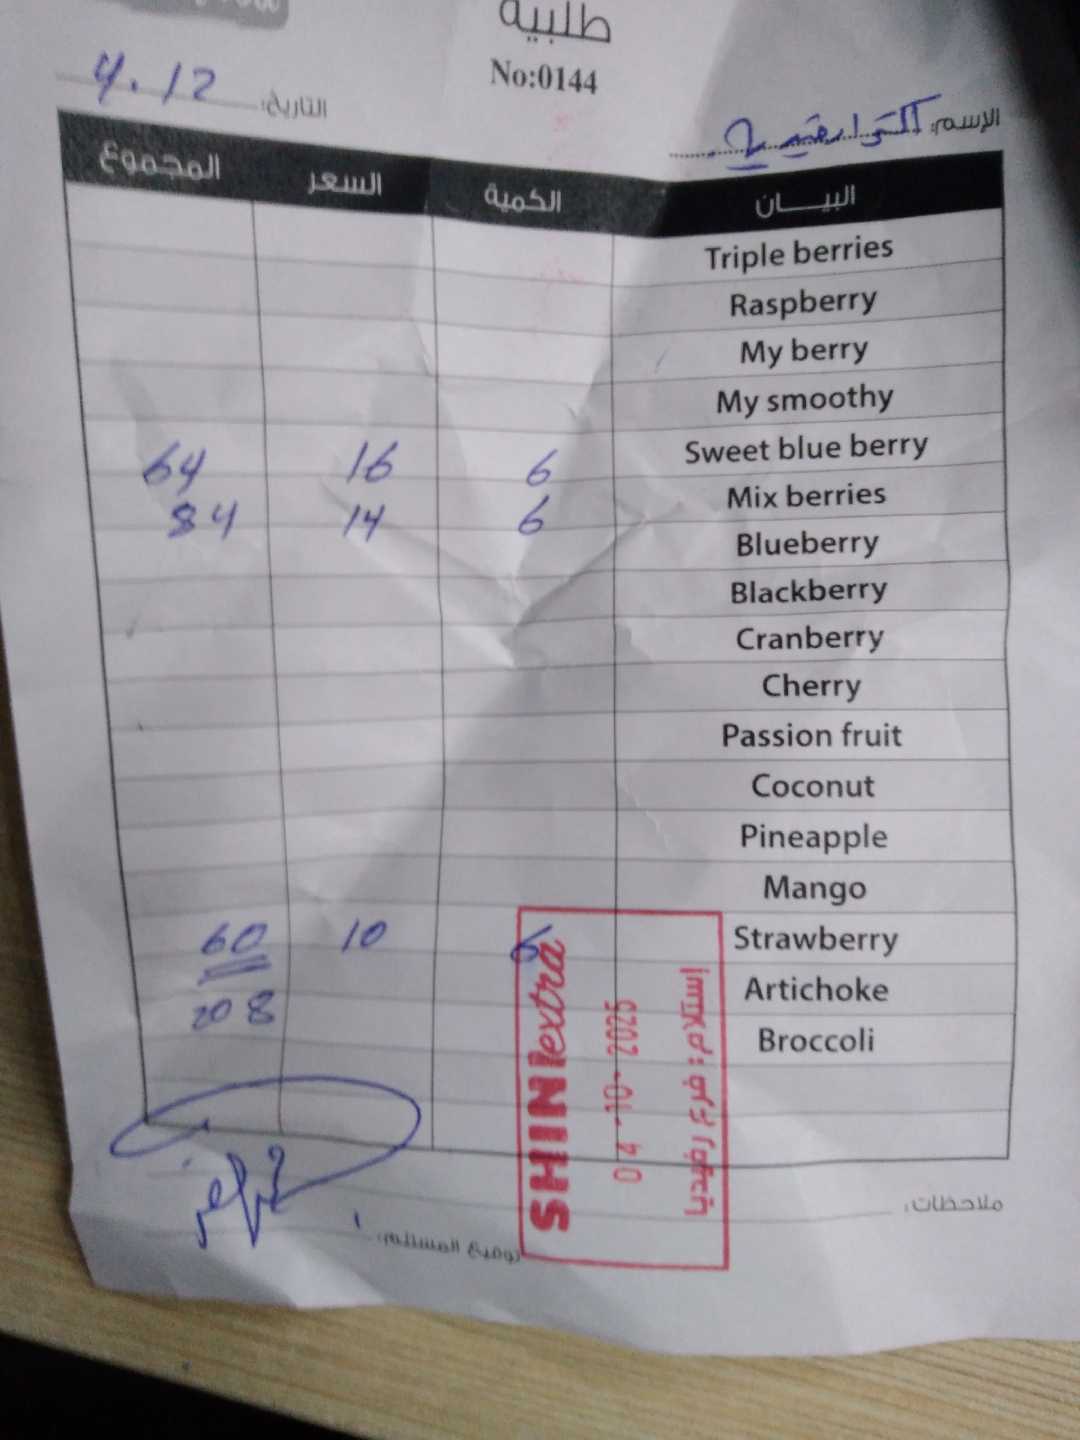 طلبية
No:0144
الإسم:
التاريخ: 4.12
البيـــــان الكمية السعر المجموع
Triple berries
Raspberry
My berry
My smoothy
Sweet blue berry 6 16 64
Mix berries 6 14 84
Blueberry
Blackberry
Cranberry
Cherry
Passion fruit
Coconut
Pineapple
Mango
Strawberry 6 10 60
Artichoke 208
Broccoli
SHINE extra
04-10-2025
إستلام: فرع
ملاحظات:
توقيع المستلم: